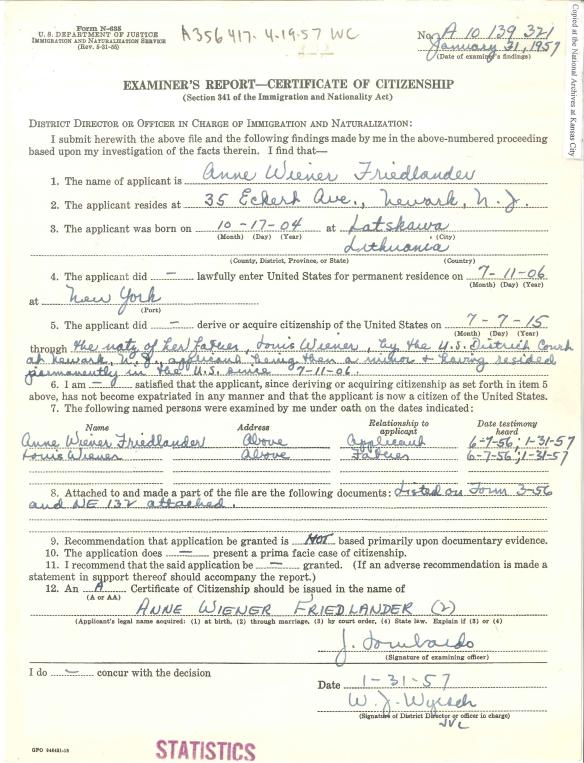 Form N-635
U. S. DEPARTMENT OF JUSTICE
IMMIGRATION AND NATURALIZATION SERVICE
(Rev. 5-31-55)
A356417. 4-19-57 WC
No. A 10 139 321
January 31, 1957
(Date of examiner's findings)
Copied at the National Archives at Kansas City
EXAMINER'S REPORT—CERTIFICATE OF CITIZENSHIP
(Section 341 of the Immigration and Nationality Act)
DISTRICT DIRECTOR OR OFFICER IN CHARGE OF IMMIGRATION AND NATURALIZATION:
I submit herewith the above file and the following findings made by me in the above-numbered proceeding
based upon my investigation of the facts therein. I find that—
1. The name of applicant is Anne Wiener Friedlander
2. The applicant resides at 35 Eckert Ave., Newark, N. J.
3. The applicant was born on 10-17-04 at Latskawa
(Month) (Day) (Year) (City)
Lithuania
(County, District, Province, or State) (Country)
4. The applicant did — lawfully enter United States for permanent residence on 7-11-06
(Month) (Day) (Year)
at New York
(Port)
5. The applicant did — derive or acquire citizenship of the United States on 7-7-15
(Month) (Day) (Year)
through the natz of her father, Louis Wiener, by the U.S. District Court
at Newark, N.J., applicant being then a minor & having resided
permanently in the U.S. since 7-11-06.
6. I am — satisfied that the applicant, since deriving or acquiring citizenship as set forth in item 5
above, has not become expatriated in any manner and that the applicant is now a citizen of the United States.
7. The following named persons were examined by me under oath on the dates indicated:
Name Address Relationship to applicant Date testimony heard
Anne Wiener Friedlander Above Applicant 6-7-56; 1-31-57
Louis Wiener Above Father 6-7-56; 1-31-57
8. Attached to and made a part of the file are the following documents: Listed on Form 3-56
and NE 132 attached.
9. Recommendation that application be granted is NOT based primarily upon documentary evidence.
10. The application does — present a prima facie case of citizenship.
11. I recommend that the said application be — granted. (If an adverse recommendation is made a
statement in support thereof should accompany the report.)
12. An A Certificate of Citizenship should be issued in the name of
(A or AA)
ANNE WIENER FRIEDLANDER (2)
(Applicant's legal name acquired: (1) at birth, (2) through marriage, (3) by court order, (4) State law. Explain if (3) or (4)
J. Lombardo
(Signature of examining officer)
I do — concur with the decision
Date 1-31-57
W. J. Wyrsch
(Signature of District Director or officer in charge)
JVL
GPO 946421-15
STATISTICS